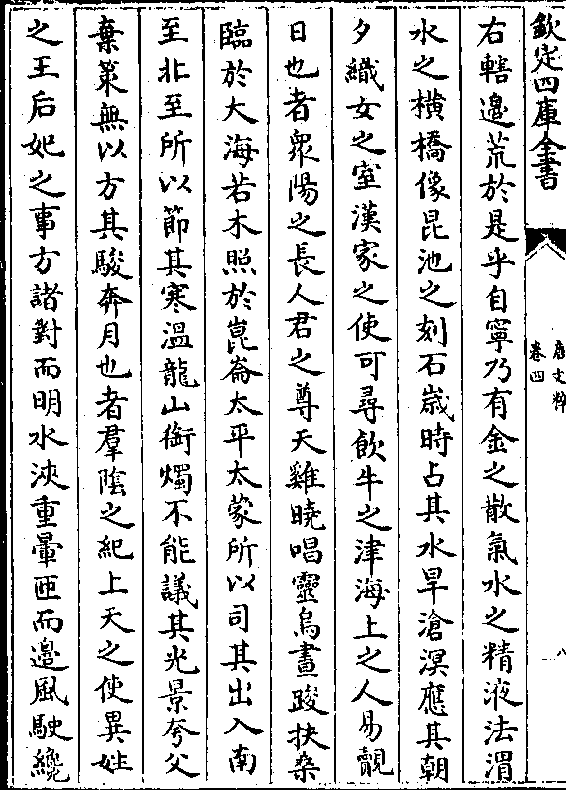 欽定四庫全書
唐文粹
卷四
八
右轄邉荒於是乎自寧乃有金之散氣水之精液法渭
水之横橋像昆池之刻石嵗時占其水旱滄溟應其朝
夕織女之室漢家之使可尋飲牛之津海上之人易覿
日也者衆陽之長人君之尊天雞曉唱靈烏晝踆扶桑
臨於大海若木照於崑崙太平太蒙所以司其出入南
至北至所以節其寒温龍山銜燭不能議其光景夸父
棄策無以方其駿奔月也者羣陰之紀上天之使異姓
之王后妃之事方諸對而明水浹重暈匝而邉風駛纔